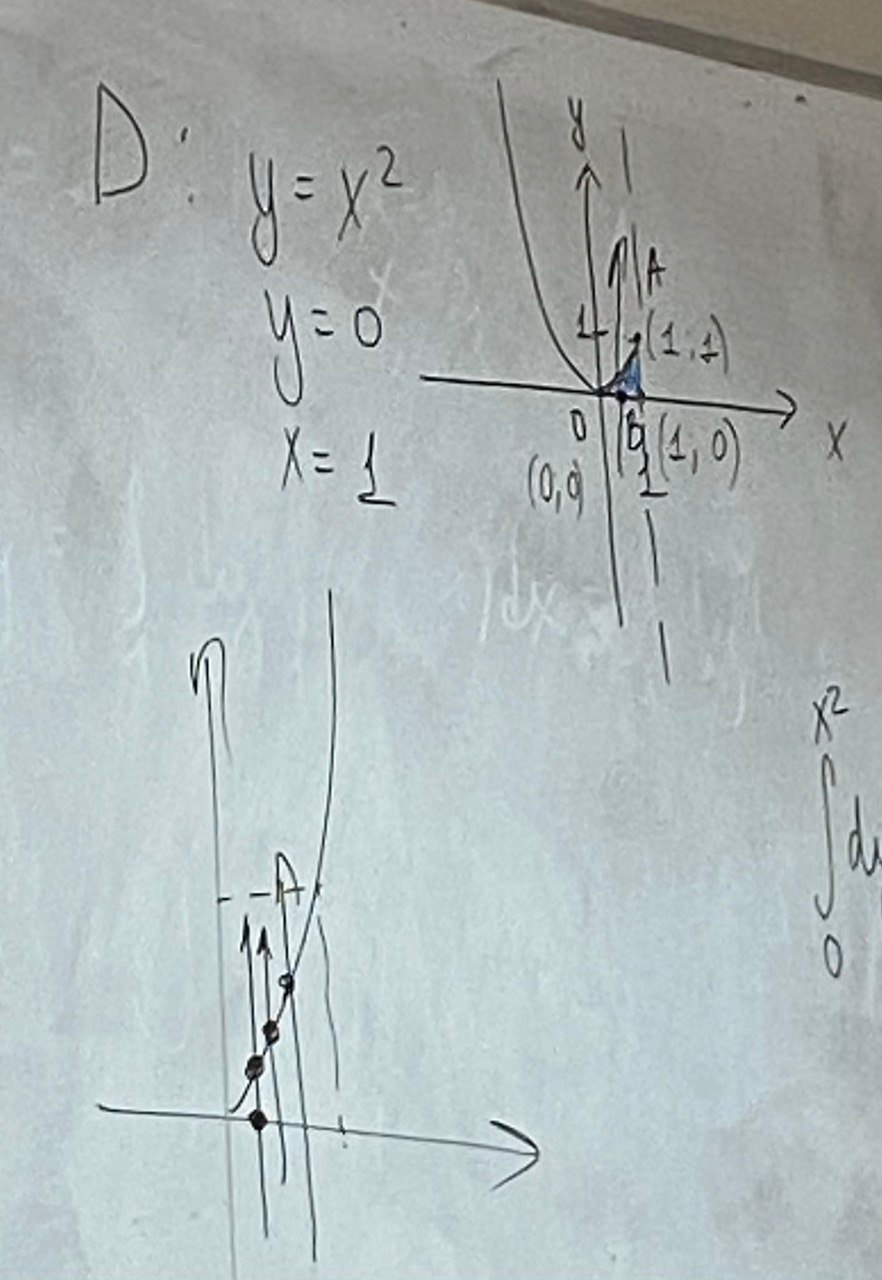 D: y = x²
y = 0
x = 1
y
A
1
(1; 1)
0
B
(1; 0)
x
(0,0)
1
dx =
A
x²
∫
0